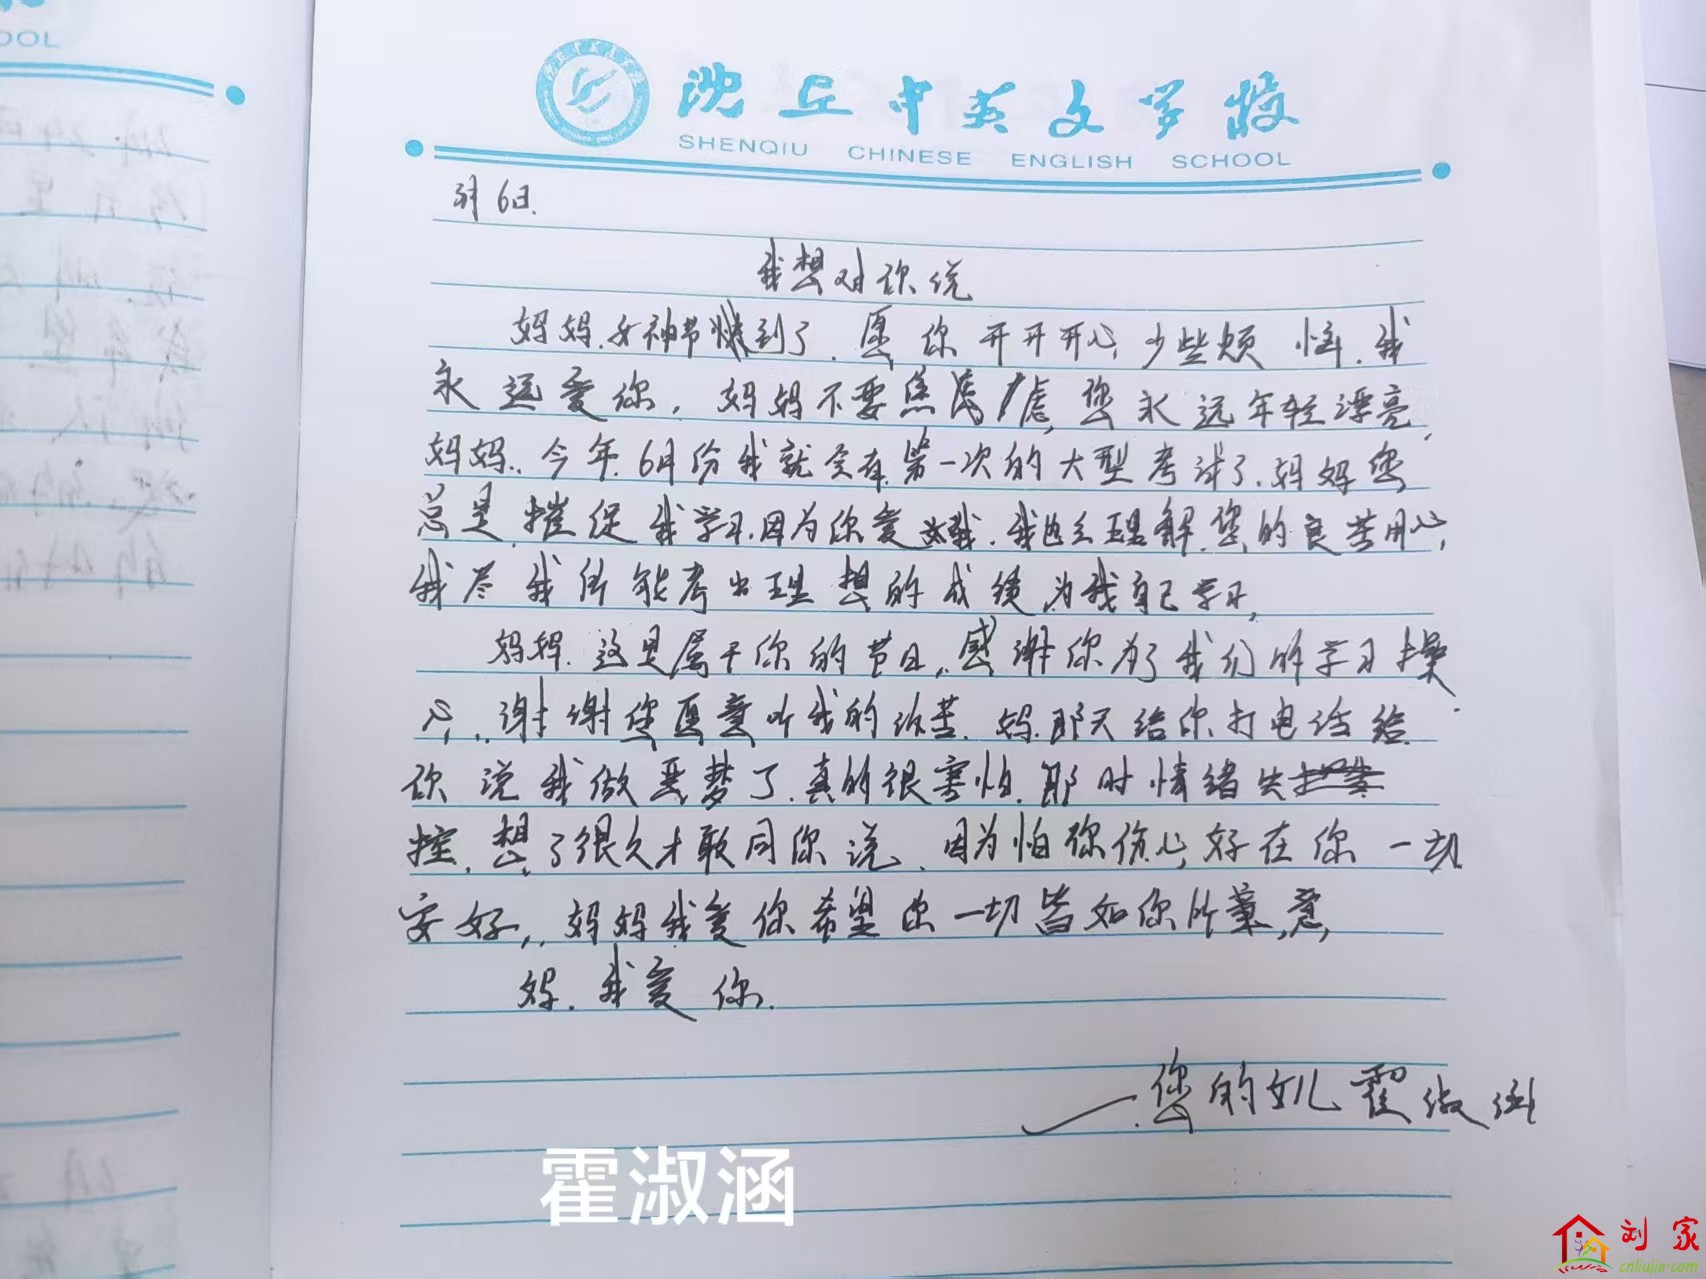 沈丘中英文学校
SHENQIU CHINESE ENGLISH SCHOOL
3月6日.
我想对你说
妈妈.女神节快到了.愿你开开开心,少些烦恼.我
永远爱你,妈妈不要焦虑,您永远年轻漂亮,
妈妈..今年.6月份我就会有第一次的大型考试了.妈妈您
总是摧促我学习.因为你爱我.我也会理解.您的良苦用心,
我尽我所能考出理想的成绩,为我自己学习,
妈妈.这是属于你的节日,.感谢你为了我们的学习操
心,..谢谢您愿意听我的诉苦.妈.那天给你打电话给
你说我做恶梦了.真的很害怕.那时情绪失
控,想了很久才敢同你说.因为怕你伤心,好在你一切
安好,..妈妈我爱你希望你一切皆如你所意,
妈.我爱你.
您的女儿霍淑涵
霍淑涵
刘家
cnliujia.com
OOL